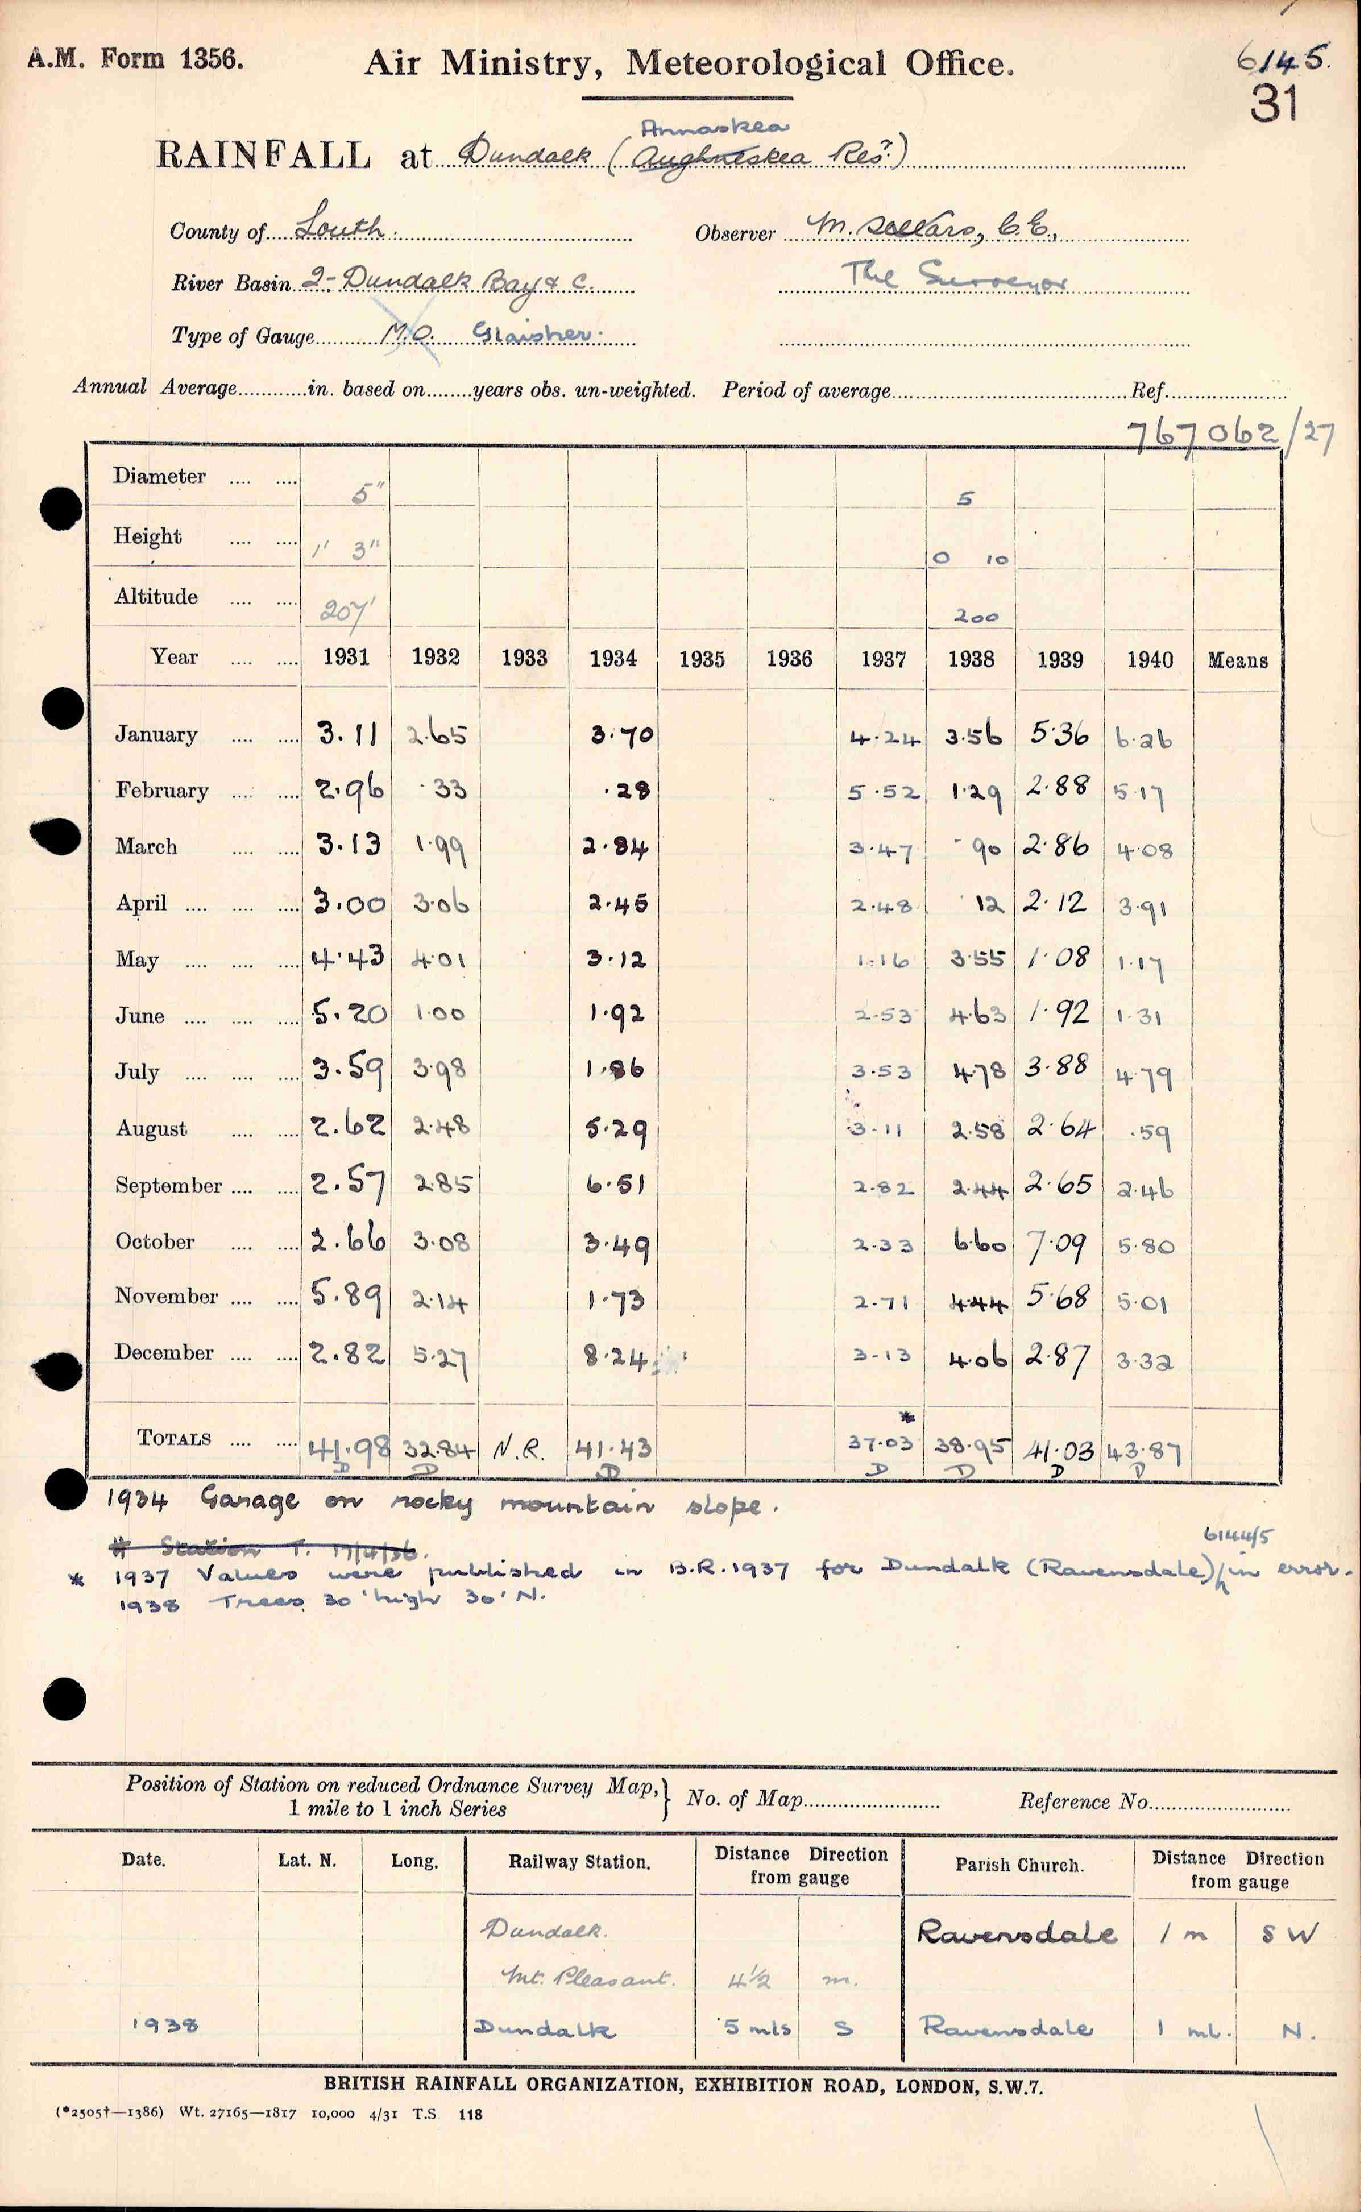 A.M. Form 1356. Air Ministry, Meteorological Office. 6145.
31
Annaskea
RAINFALL at Dundalk (Aughneskea Resr.)
County of Louth. Observer M. Sellars, C.E.,
River Basin 2-Dundalk Bay & C. The Surveyor
Type of Gauge M.O. Glaisher.
Annual Average in. based on years obs. un-weighted. Period of average Ref.
767062/27
Diameter 5" 5
Height 1' 3" 0 10
Altitude 207' 200
Year 1931 1932 1933 1934 1935 1936 1937 1938 1939 1940 Means
January 3.11 2.65 3.70 4.24 3.56 5.36 6.26
February 2.96 .33 .28 5.52 1.29 2.88 5.17
March 3.13 1.99 2.84 3.47 .90 2.86 4.08
April 3.00 3.06 2.45 2.48 .12 2.12 3.91
May 4.43 4.01 3.12 1.16 3.55 1.08 1.17
June 5.20 1.00 1.92 2.53 4.63 1.92 1.31
July 3.59 3.98 1.86 3.53 4.78 3.88 4.79
August 2.62 2.48 5.29 3.11 2.58 2.64 .59
September 2.57 2.85 6.51 2.82 2.44 2.65 2.46
October 2.66 3.08 3.49 2.33 6.60 7.09 5.80
November 5.89 2.14 1.73 2.71 4.44 5.68 5.01
December 2.82 5.27 8.24 3.13 4.06 2.87 3.32
*
TOTALS 41.98 32.84 N.R. 41.43 37.03 38.95 41.03 43.87
D D D D D D D
1934 Garage on rocky mountain slope.
# Station T. 17/4/36. 6144/5
* 1937 Values were published in B.R. 1937 for Dundalk (Ravensdale) in error.
1938 Trees 30' high 30' N.
Position of Station on reduced Ordnance Survey Map,} No. of Map Reference No.
1 mile to 1 inch Series
Date. Lat. N. Long. Railway Station. Distance Direction from gauge Parish Church. Distance Direction from gauge
Dundalk. Ravensdale 1 m S W
Mt. Pleasant. 4½ m.
1938 Dundalk 5 mls S Ravensdale 1 ml. N.
BRITISH RAINFALL ORGANIZATION, EXHIBITION ROAD, LONDON, S.W.7.
(*2505†—1386) Wt. 27165—1817 10,000 4/31 T.S 118